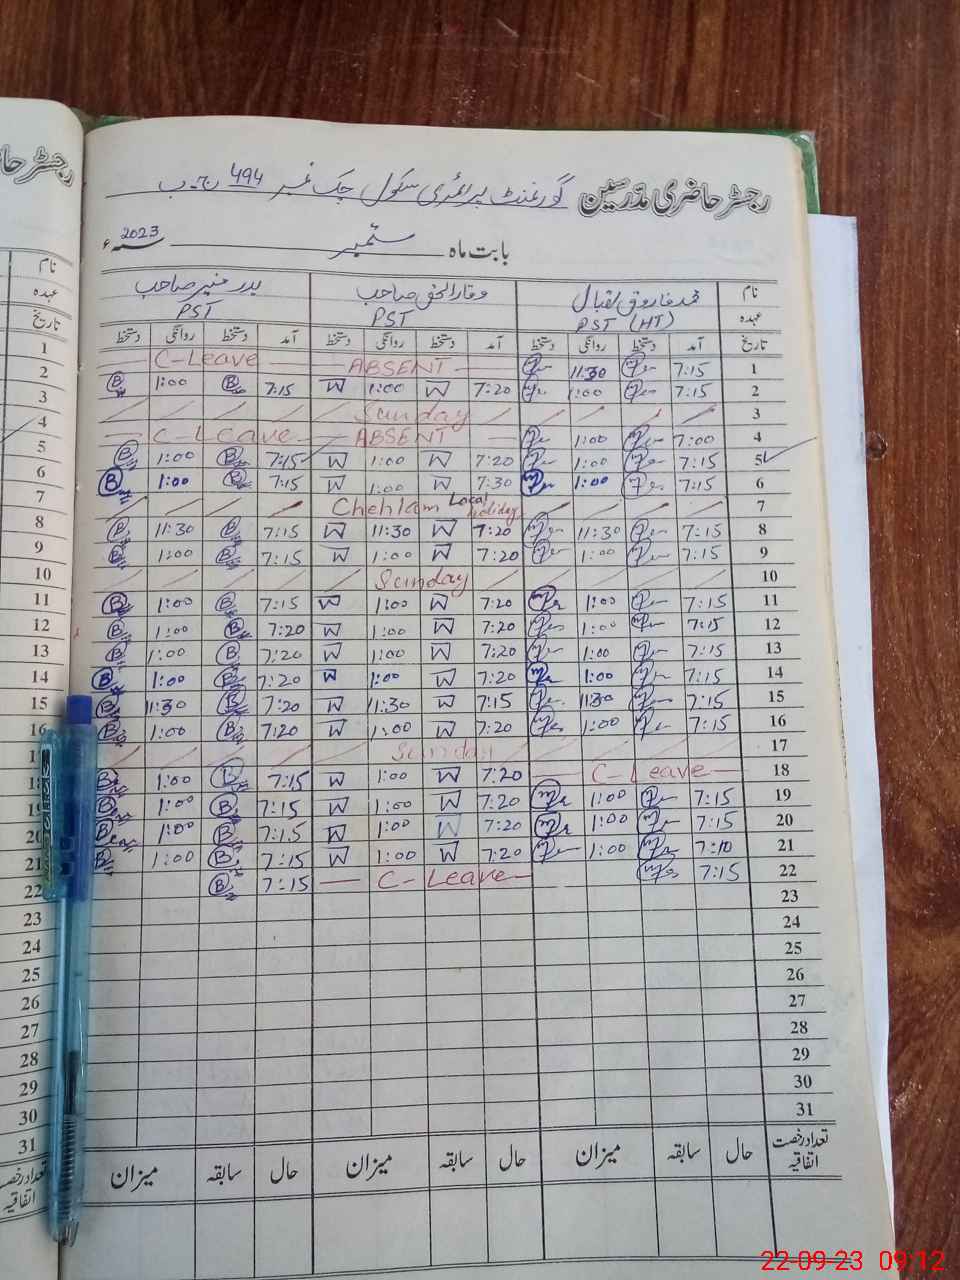 رجسٹر حاضری مدرسین گورنمنٹ پرائمری سکول چک نمبر 494 ج۔ب
بابت ماہ ستمبر سنہ 2023ء
نام محمد فاروق اقبال وقار الحق صاحب بدر منیر صاحب
عہدہ PST (HT) PST PST
تاریخ آمد دستخط روانگی دستخط آمد دستخط روانگی دستخط آمد دستخط روانگی دستخط
1 7:15 11:30 ABSENT C-Leave
2 7:15 1:00 7:20 W 1:00 W 7:15 B 1:00 B
3 Sunday
4 7:00 1:00 ABSENT C-Leave
5 7:15 1:00 7:20 W 1:00 W 7:15 B 1:00 B
6 7:15 1:00 7:30 W 1:00 W 7:15 B 1:00 B
7 Chehlam Local Holiday
8 7:15 11:30 7:20 W 11:30 W 7:15 B 11:30 B
9 7:15 1:00 7:20 W 1:00 W 7:15 B 1:00 B
10 Sunday
11 7:15 1:00 7:20 W 1:00 W 7:15 B 1:00 B
12 7:15 1:00 7:20 W 1:00 W 7:20 B 1:00 B
13 7:15 1:00 7:20 W 1:00 W 7:20 B 1:00 B
14 7:15 1:00 7:20 W 1:00 W 7:20 B 1:00 B
15 7:15 11:30 7:15 W 11:30 W 7:20 B 11:30 B
16 7:15 1:00 7:20 W 1:00 W 7:20 B 1:00 B
17 Sunday
18 C-Leave 7:20 W 1:00 W 7:15 B 1:00 B
19 7:15 1:00 7:20 W 1:00 W 7:15 B 1:00 B
20 7:15 1:00 7:20 W 1:00 W 7:15 B 1:00 B
21 7:10 1:00 7:20 W 1:00 W 7:15 B 1:00 B
22 7:15 C-Leave 7:15 B
23
24
25
26
27
28
29
30
31
تعداد رخصت اتفاقیہ حال سابقہ میزان حال سابقہ میزان حال سابقہ میزان
رجسٹر حا
نام
عہدہ
تاریخ
1
2
3
4
5
6
7
8
9
10
11
12
13
14
15
16
22
23
24
25
26
27
28
29
30
31
تعداد رخصت
اتفاقیہ
22-09-23 09:12